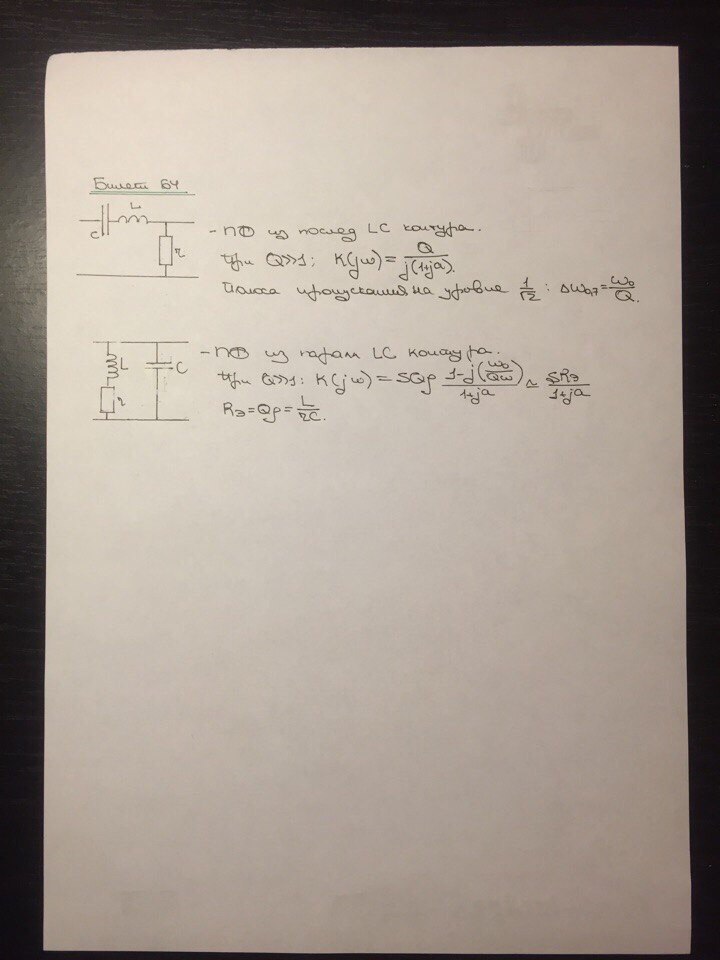 Билет 64
L
C
r
- ПФ из послед LC контура.
При Q>>1: K(jω) = Q/(j(1+ja)).
Полоса пропускания на уровне 1/√2 : Δω0,7 = ω0/Q.
L
C
r
- ПФ из паралл LC контура.
При Q>>1: K(jω) = SQρ (1-j(ω0/Qω))/(1+ja) ≃ SRэ/(1+ja)
Rэ = Qρ = L/rC.